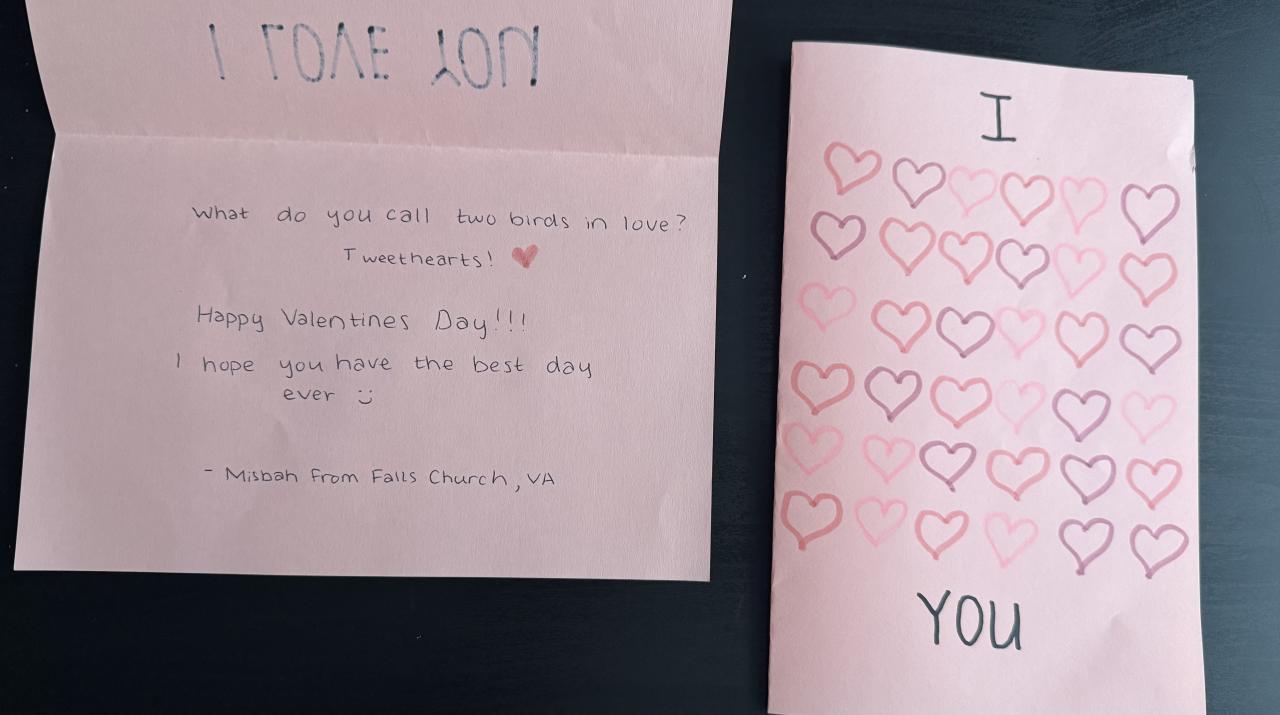 I LOVE YOU
What do you call two birds in love?
Tweethearts!
Happy Valentines Day!!!
I hope you have the best day
ever :)
- Misbah from Falls Church, VA
I
YOU